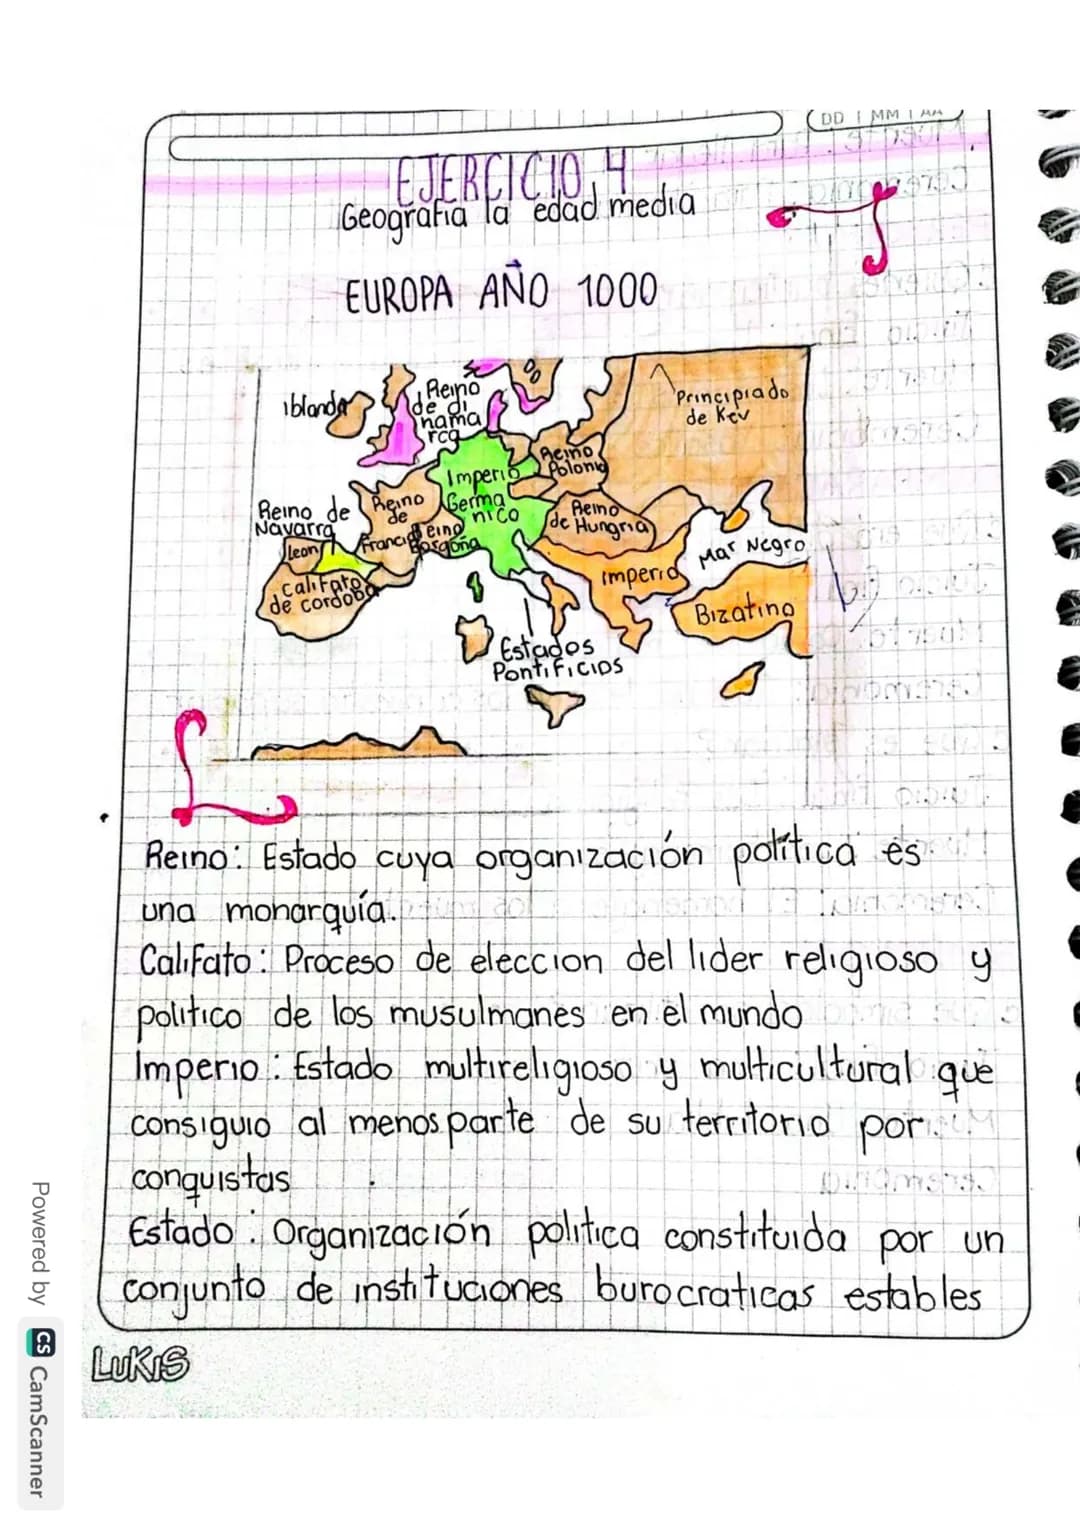 DD MM AA
EJERCICIO 4
Geografia la edad media
EUROPA AÑO 1000
iblanda
Reino
de di
nama
rca
Principiado
de Kev
Reino
Polonia
Imperio
Germa
nico
Reino de
Navarra
Reino
de
Francia
Reino
Borgoña
Reino
de Hungria
leon
Mar Negro
califato
de cordoba
Imperio
Bizatino
Estados
Pontificios
Reino: Estado cuya organización política es
una monarquía.
Califato: Proceso de eleccion del lider religioso y
politico de los musulmanes en el mundo
Imperio: Estado multireligioso y multicultural que
consiguio al menos parte de su territorio por
conquistas
Estado: Organización politica constituida por un
conjunto de instituciones burocraticas estables
LUKIS
Powered by CS CamScanner